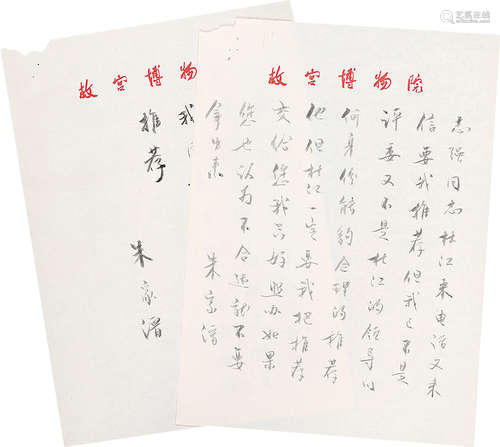 故宫博物院
志强同志杜江来电话又来
信要我推荐但我已不是
评委又不是杜江的领导以
何身份能够合理的推荐
他但杜江一定要我把推荐
交给您我只好照办如果
您也认为不合适就不要
拿出来
朱家溍
故宫博物
我
推荐
朱家溍